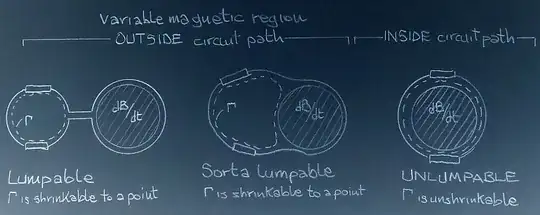 Variable magnetic region
OUTSIDE circuit path
INSIDE circuit path
Γ
dB/dt
Γ
dB/dt
dB/dt
Lumpable
Γ is shrinkable to a point
Sorta lumpable
Γ is shrinkable to a point
UNLUMPABLE
Γ is unshrinkable